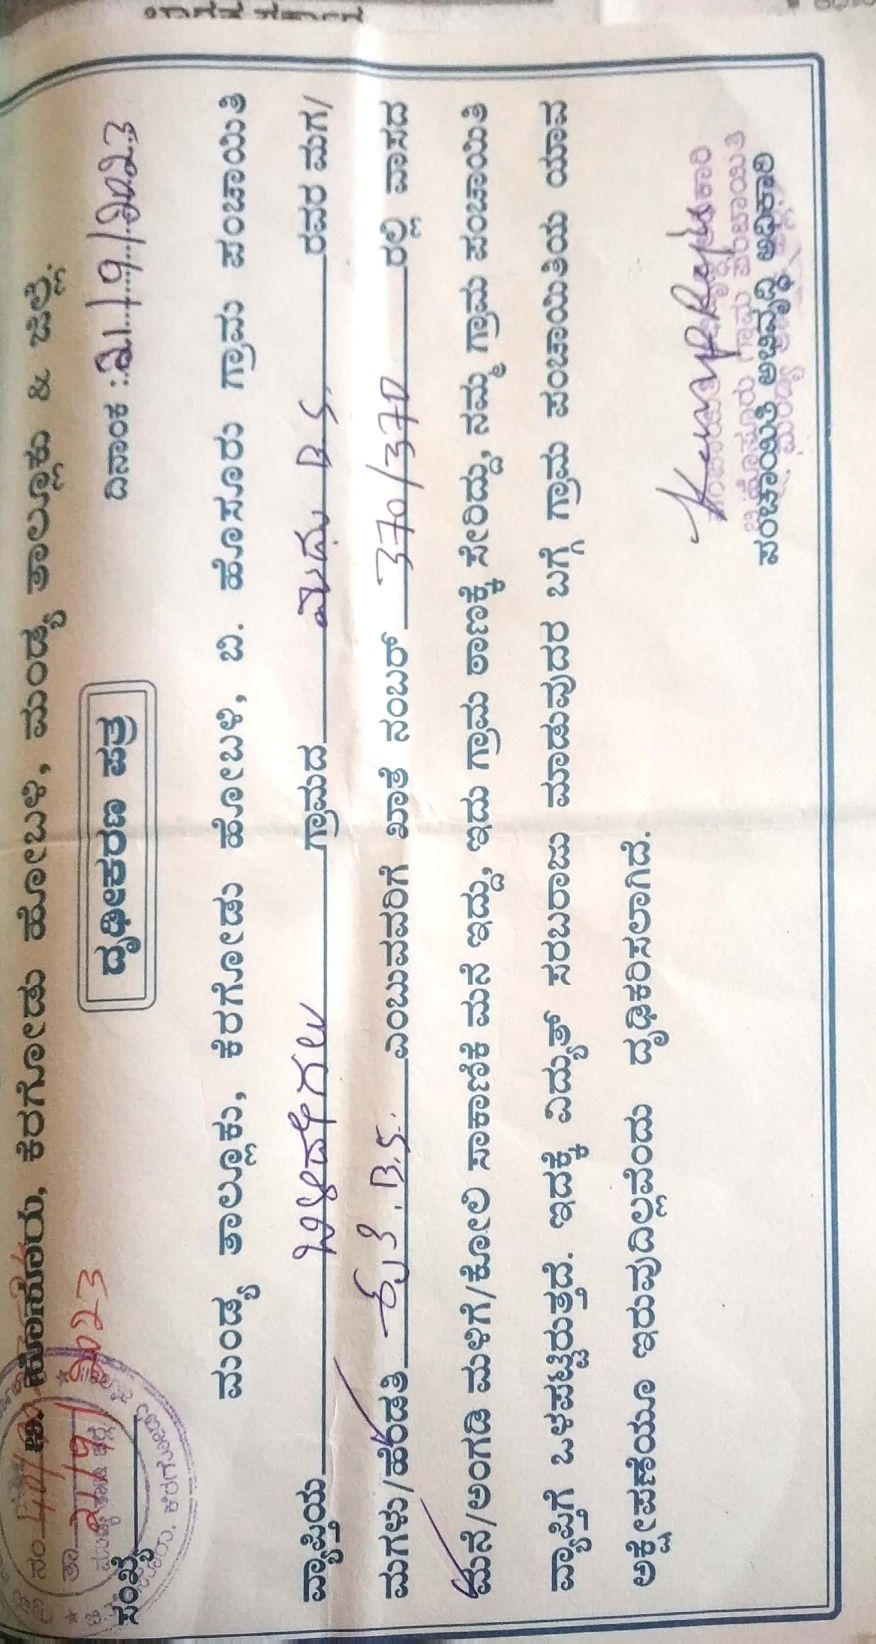 ಬಿ. ಹೊಸೂರು, ಕೆರಗೋಡು ಹೋಬಳಿ, ಮಂಡ್ಯ ತಾಲ್ಲೂಕು & ಜಿಲ್ಲೆ.
ನಂ 40
ತಾ 21/9/2023
ಸಂಖ್ಯೆ
ದೃಢೀಕರಣ ಪತ್ರ
ದಿನಾಂಕ : 21/9/2023
ಮಂಡ್ಯ ತಾಲ್ಲೂಕು, ಕೆರಗೋಡು ಹೋಬಳಿ, ಬಿ. ಹೊಸೂರು ಗ್ರಾಮ ಪಂಚಾಯಿತಿ
ವ್ಯಾಪ್ತಿಯ ಬಿಳಿದೇಗಲು ಗ್ರಾಮದ ಮಧು B S ರವರ ಮಗ/
ಮಗಳು/ಹೆಂಡತಿ ಶೃತಿ. B.S. ಎಂಬುವವರಿಗೆ ಖಾತೆ ನಂಬರ್ 370/370 ರಲ್ಲಿ ವಾಸದ
ಮನೆ/ಅಂಗಡಿ ಮಳಿಗೆ/ಕೋಲಿ ಸಾಕಾಣಿಕೆ ಮನೆ ಇದ್ದು, ಇದು ಗ್ರಾಮ ಠಾಣಕ್ಕೆ ಸೇರಿದ್ದು, ನಮ್ಮ ಗ್ರಾಮ ಪಂಚಾಯಿತಿ
ವ್ಯಾಪ್ತಿಗೆ ಒಳಪಟ್ಟಿರುತ್ತದೆ. ಇದಕ್ಕೆ ವಿದ್ಯುತ್ ಸರಬರಾಜು ಮಾಡುವುದರ ಬಗ್ಗೆ ಗ್ರಾಮ ಪಂಚಾಯಿತಿಯ ಯಾವ
ಅಕ್ಷೇಪಣೆಯೂ ಇರುವುದಿಲ್ಲವೆಂದು ದೃಢಿಕರಿಸಲಾಗಿದೆ.
ಬಿ.ಹೊಸೂರು ಗ್ರಾಮ ಪಂಚಾಯಿತಿ
ಪಂಚಾಯಿತಿ ಅಭಿವೃದ್ಧಿ ಅಧಿಕಾರಿ